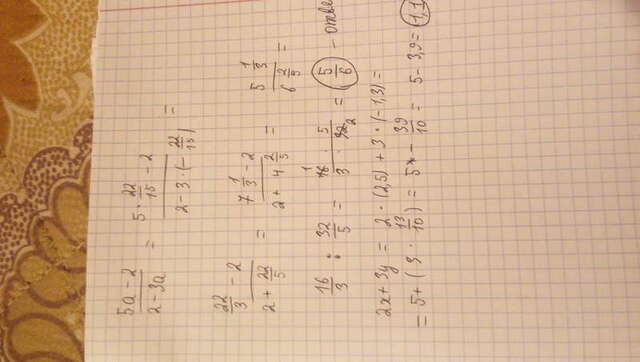 (5a - 2)/(2 - 3a) = (5 · 22/15 - 2)/(2 - 3 · (- 22/15)) =
(22/3 - 2)/(2 + 22/5) = (7 1/3 - 2)/(2 + 4 2/5) = (5 1/3)/(6 2/5) =
16/3 : 32/5 = (16 1 · 5)/(3 · 32 2) = 5/6 - отве
2x + 3y = 2 · (2,5) + 3 · (-1,3) =
= 5 + ( 3 · 13/10 ) = 5 - 39/10 = 5 - 3,9 = 1,1